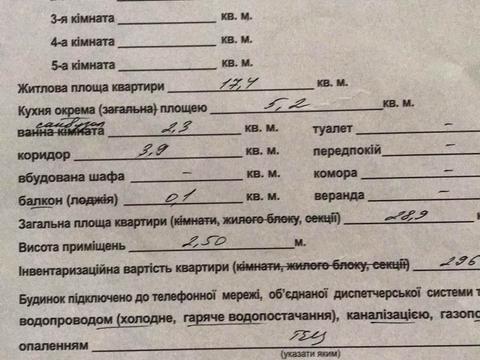 3-я кімната кв. м.
4-а кімната кв. м.
5-а кімната кв. м.
Житлова площа квартири 17,4 кв. м.
Кухня окрема (загальна) площею 5,2 кв. м.
санвузол
ванна кімната 2,3 кв. м. туалет –
коридор 3,9 кв. м. передпокій –
вбудована шафа – кв. м. комора –
балкон (лоджія) 0,1 кв. м. веранда –
Загальна площа квартири (кімнати, жилого блоку, секції) 28,9 к
Висота приміщень 2,50 м.
Інвентаризаційна вартість квартири (кімнати, жилого блоку, секції) 296
Будинок підключено до телефонної мережі, об'єднаної диспетчерської системи т
водопроводом (холодне, гаряче водопостачання), каналізацією, газоп
опаленням ТЕЦ
(указати яким)